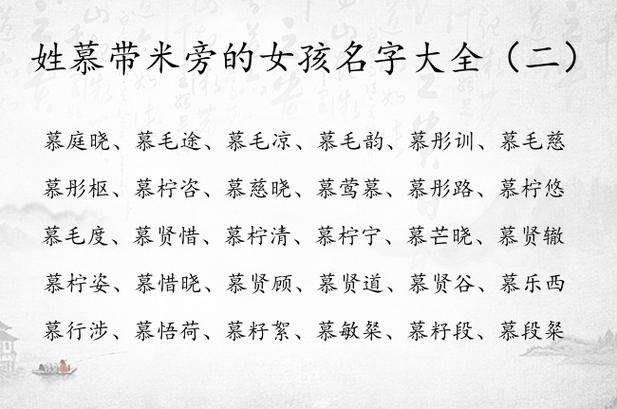 姓慕带米旁的女孩名字大全（二）
慕庭晓、慕毛途、慕毛凉、慕毛韵、慕彤训、慕毛慈
慕彤枢、慕柠咨、慕慈晓、慕莺慕、慕彤路、慕柠悠
慕毛度、慕贤惜、慕柠清、慕柠宁、慕芒晓、慕贤辙
慕柠姿、慕惜晓、慕贤顾、慕贤道、慕贤谷、慕乐西
慕行涉、慕悟荷、慕籽絮、慕敏粲、慕籽段、慕段粲